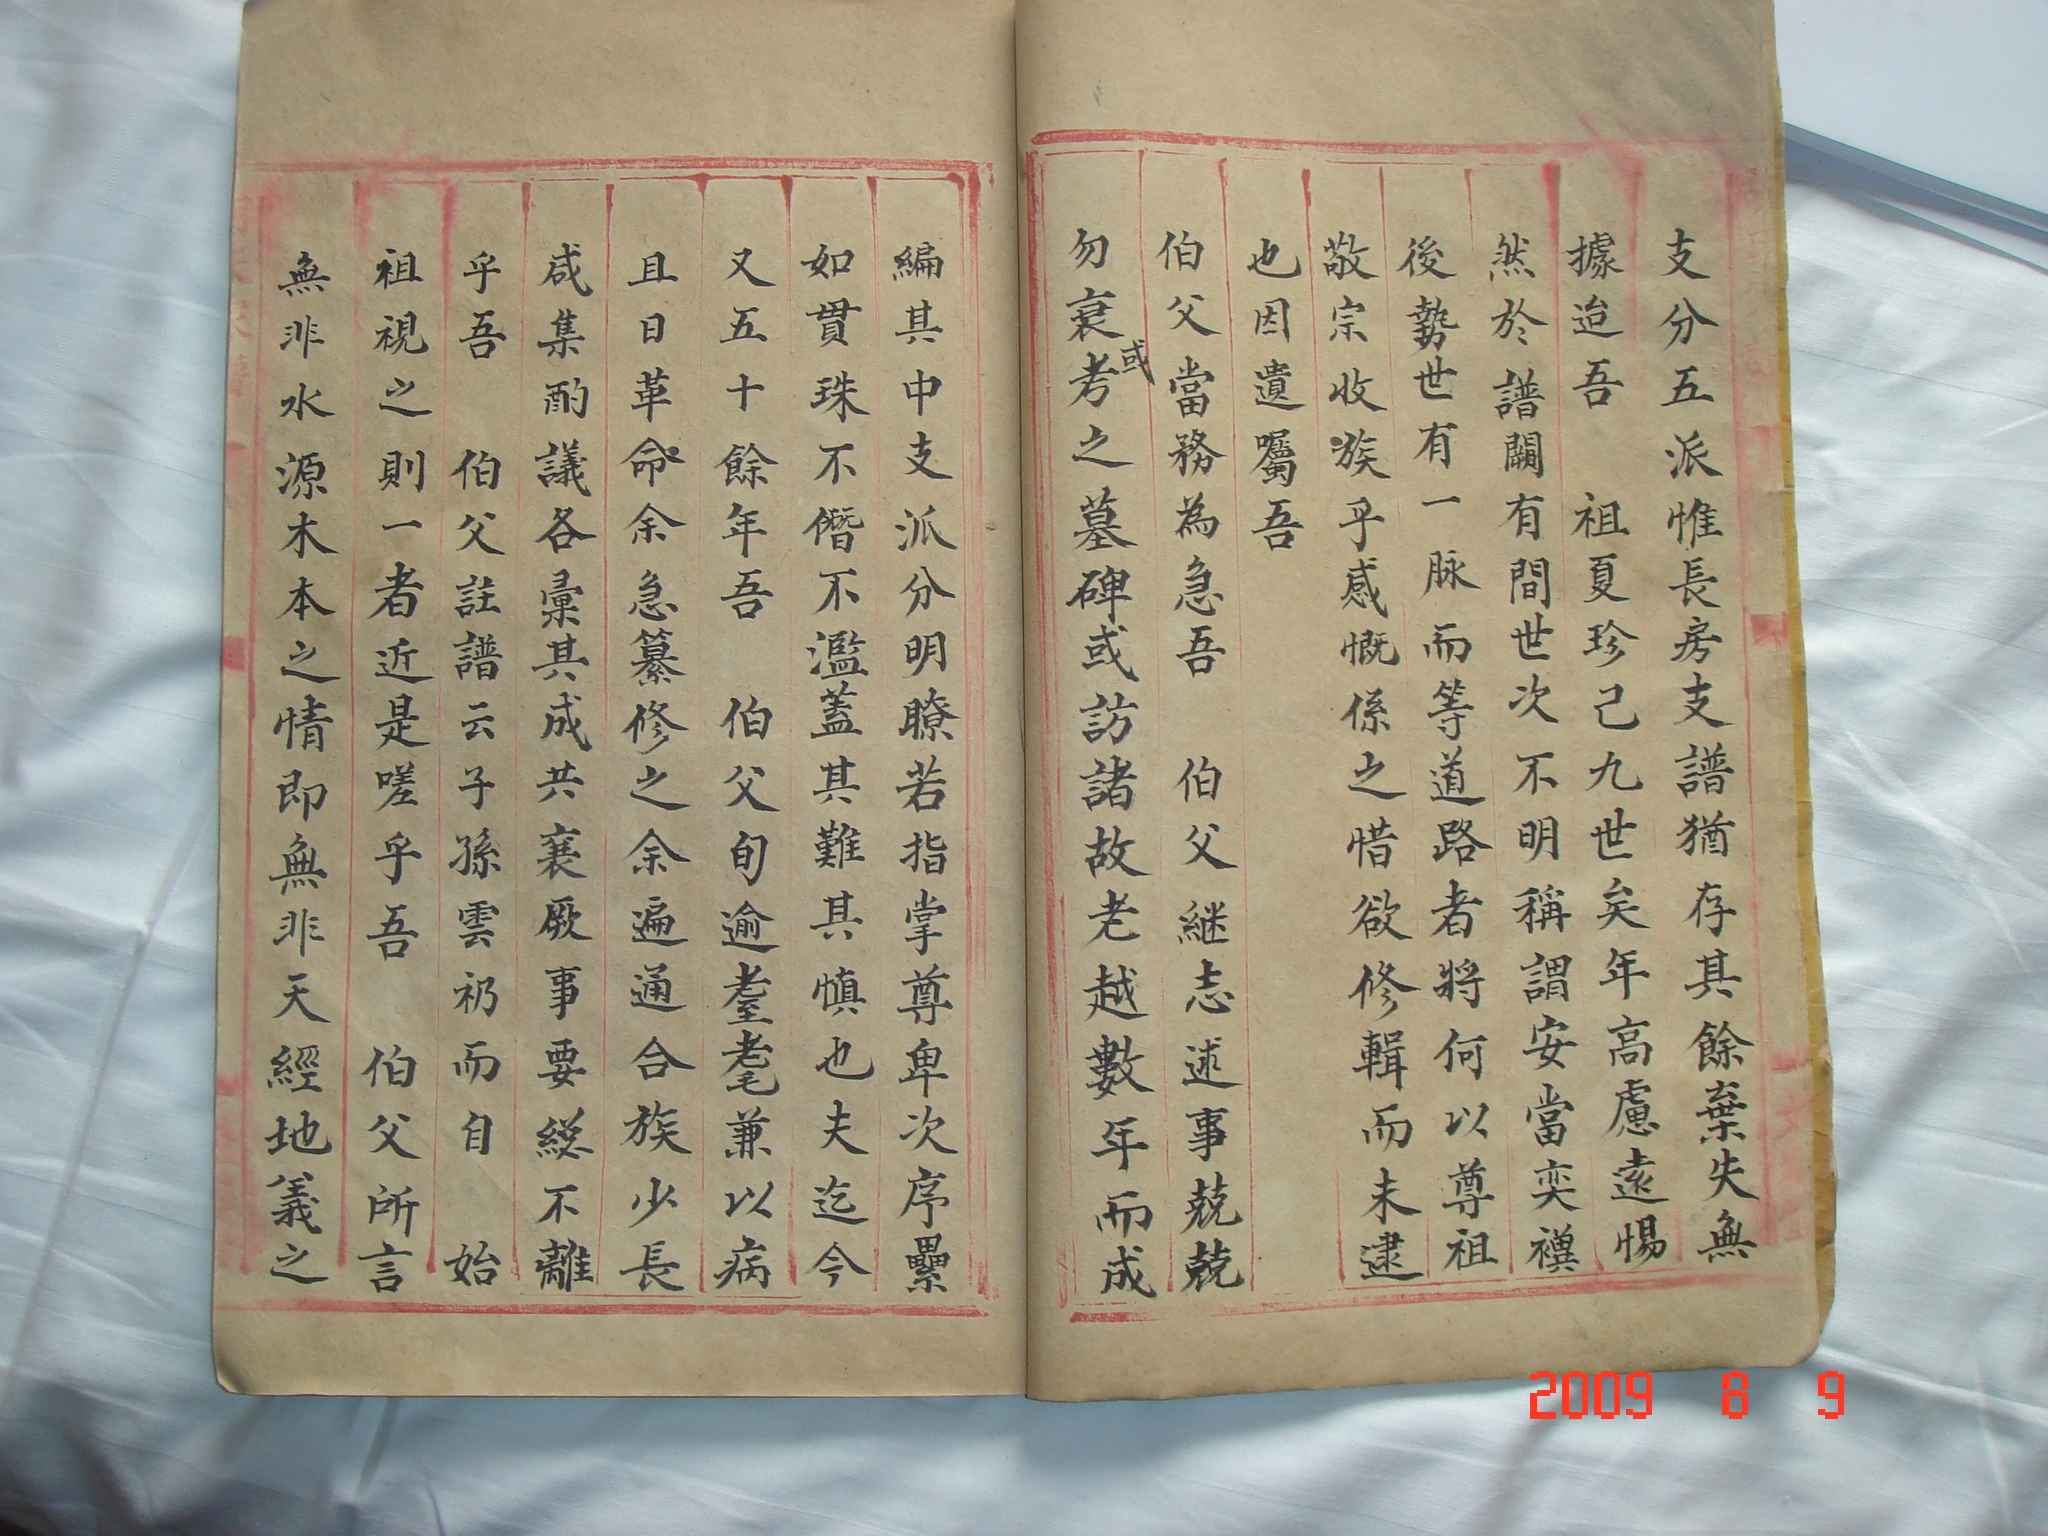 支分五派惟長房支譜猶存其餘棄失無
據迨吾 祖夏珍己九世矣年高慮遠惕
然於譜闕有間世次不明稱謂安當奕禩
後勢世有一脉而等道路者將何以尊祖
敬宗收族乎感慨係之惜欲修輯而未逮
也因遺囑吾
伯父當務為急吾 伯父継志述事兢兢
勿衰或考之墓碑或訪諸故老越數年而成
編其中支派分明瞭若指掌尊卑次序纍
如貫珠不僭不濫蓋其難其慎也夫迄今
又五十餘年吾 伯父旬逾耋耄兼以病
且日革命余急纂修之余遍通合族少長
咸集酌議各彙其成共襄厥事要總不離
乎吾 伯父註譜云子孫雲礽而自 始
祖視之則一者近是嗟乎吾 伯父所言
無非水源木本之情即無非天經地義之
2009 8 9